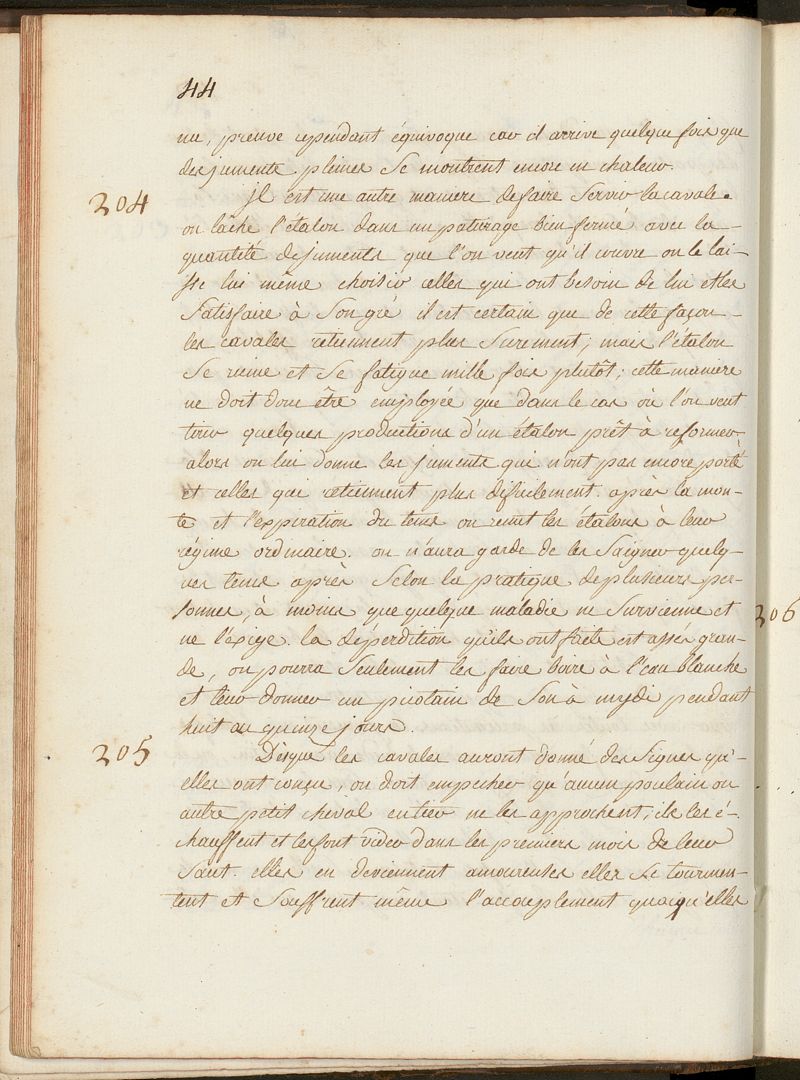 44
nue, preuve cependant équivoque car il arrive quelque fois que
des juments pleines se montrent encore en chaleur.
204
Jl est une autre maniere de faire servir la cavale.
on lache l'étalon dans un paturage bien fermé avec la
quantité de juments que l'on veut qu'il couvre on le lai-
sse lui même choisir celles qui ont besoin de lui et les
satisfaire à son gré il est certain que de cette façon
les cavales retiennent plus surement; mais l'étalon
se ruine et se fatigue mille fois plutôt; cette maniere
ne doit donc être employée que dans le cas où l'on veut
tirer quelques productions d'un étalon prêt à reformer,
alors on lui donne les juments qui n'ont pas encore porté
et celles qui retiennent plus dificilement. après la mon-
te et l'expiration du tems on remet les étalons à leur
régime ordinaire. on n'aura garde de les saigner quelq-
ues tems après selon la pratique de plusieurs per-
sonnes, à moins que quelque maladie ne survienne et
ne l'éxige. la déperdition qu'ils ont faite est assés gran-
de, on pourra seulement les faire boire à l'eau blanche
et leur donner un picotain de son à mydi pendant
huit ou quinze jours.
205
Dèsque les cavales auront donné des signes qu'-
elles ont conçu, on doit empecher qu'aucun poulain ou
autre petit cheval entier ne les approchent; ils les é-
chauffent et les font vider dans les premiers mois de leur
saut. elles en deviennent amoureuses elles se tourmen-
tent et souffrent même l'accouplement quoiqu'elles
206